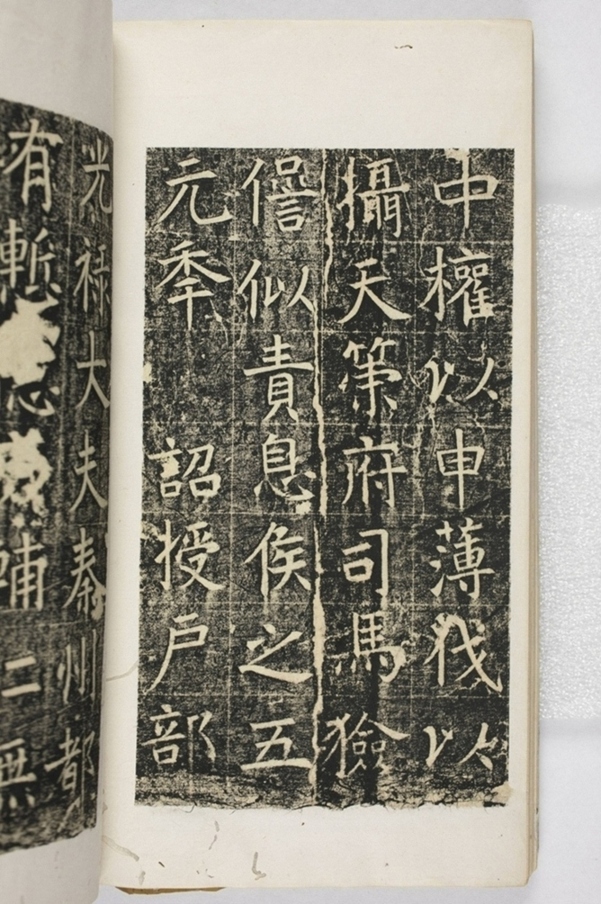 中權以申薄伐以
攝天策府司馬獫
似責息侯之五
元秊詔授戶部
光祿大夫秦州都
有慙二無